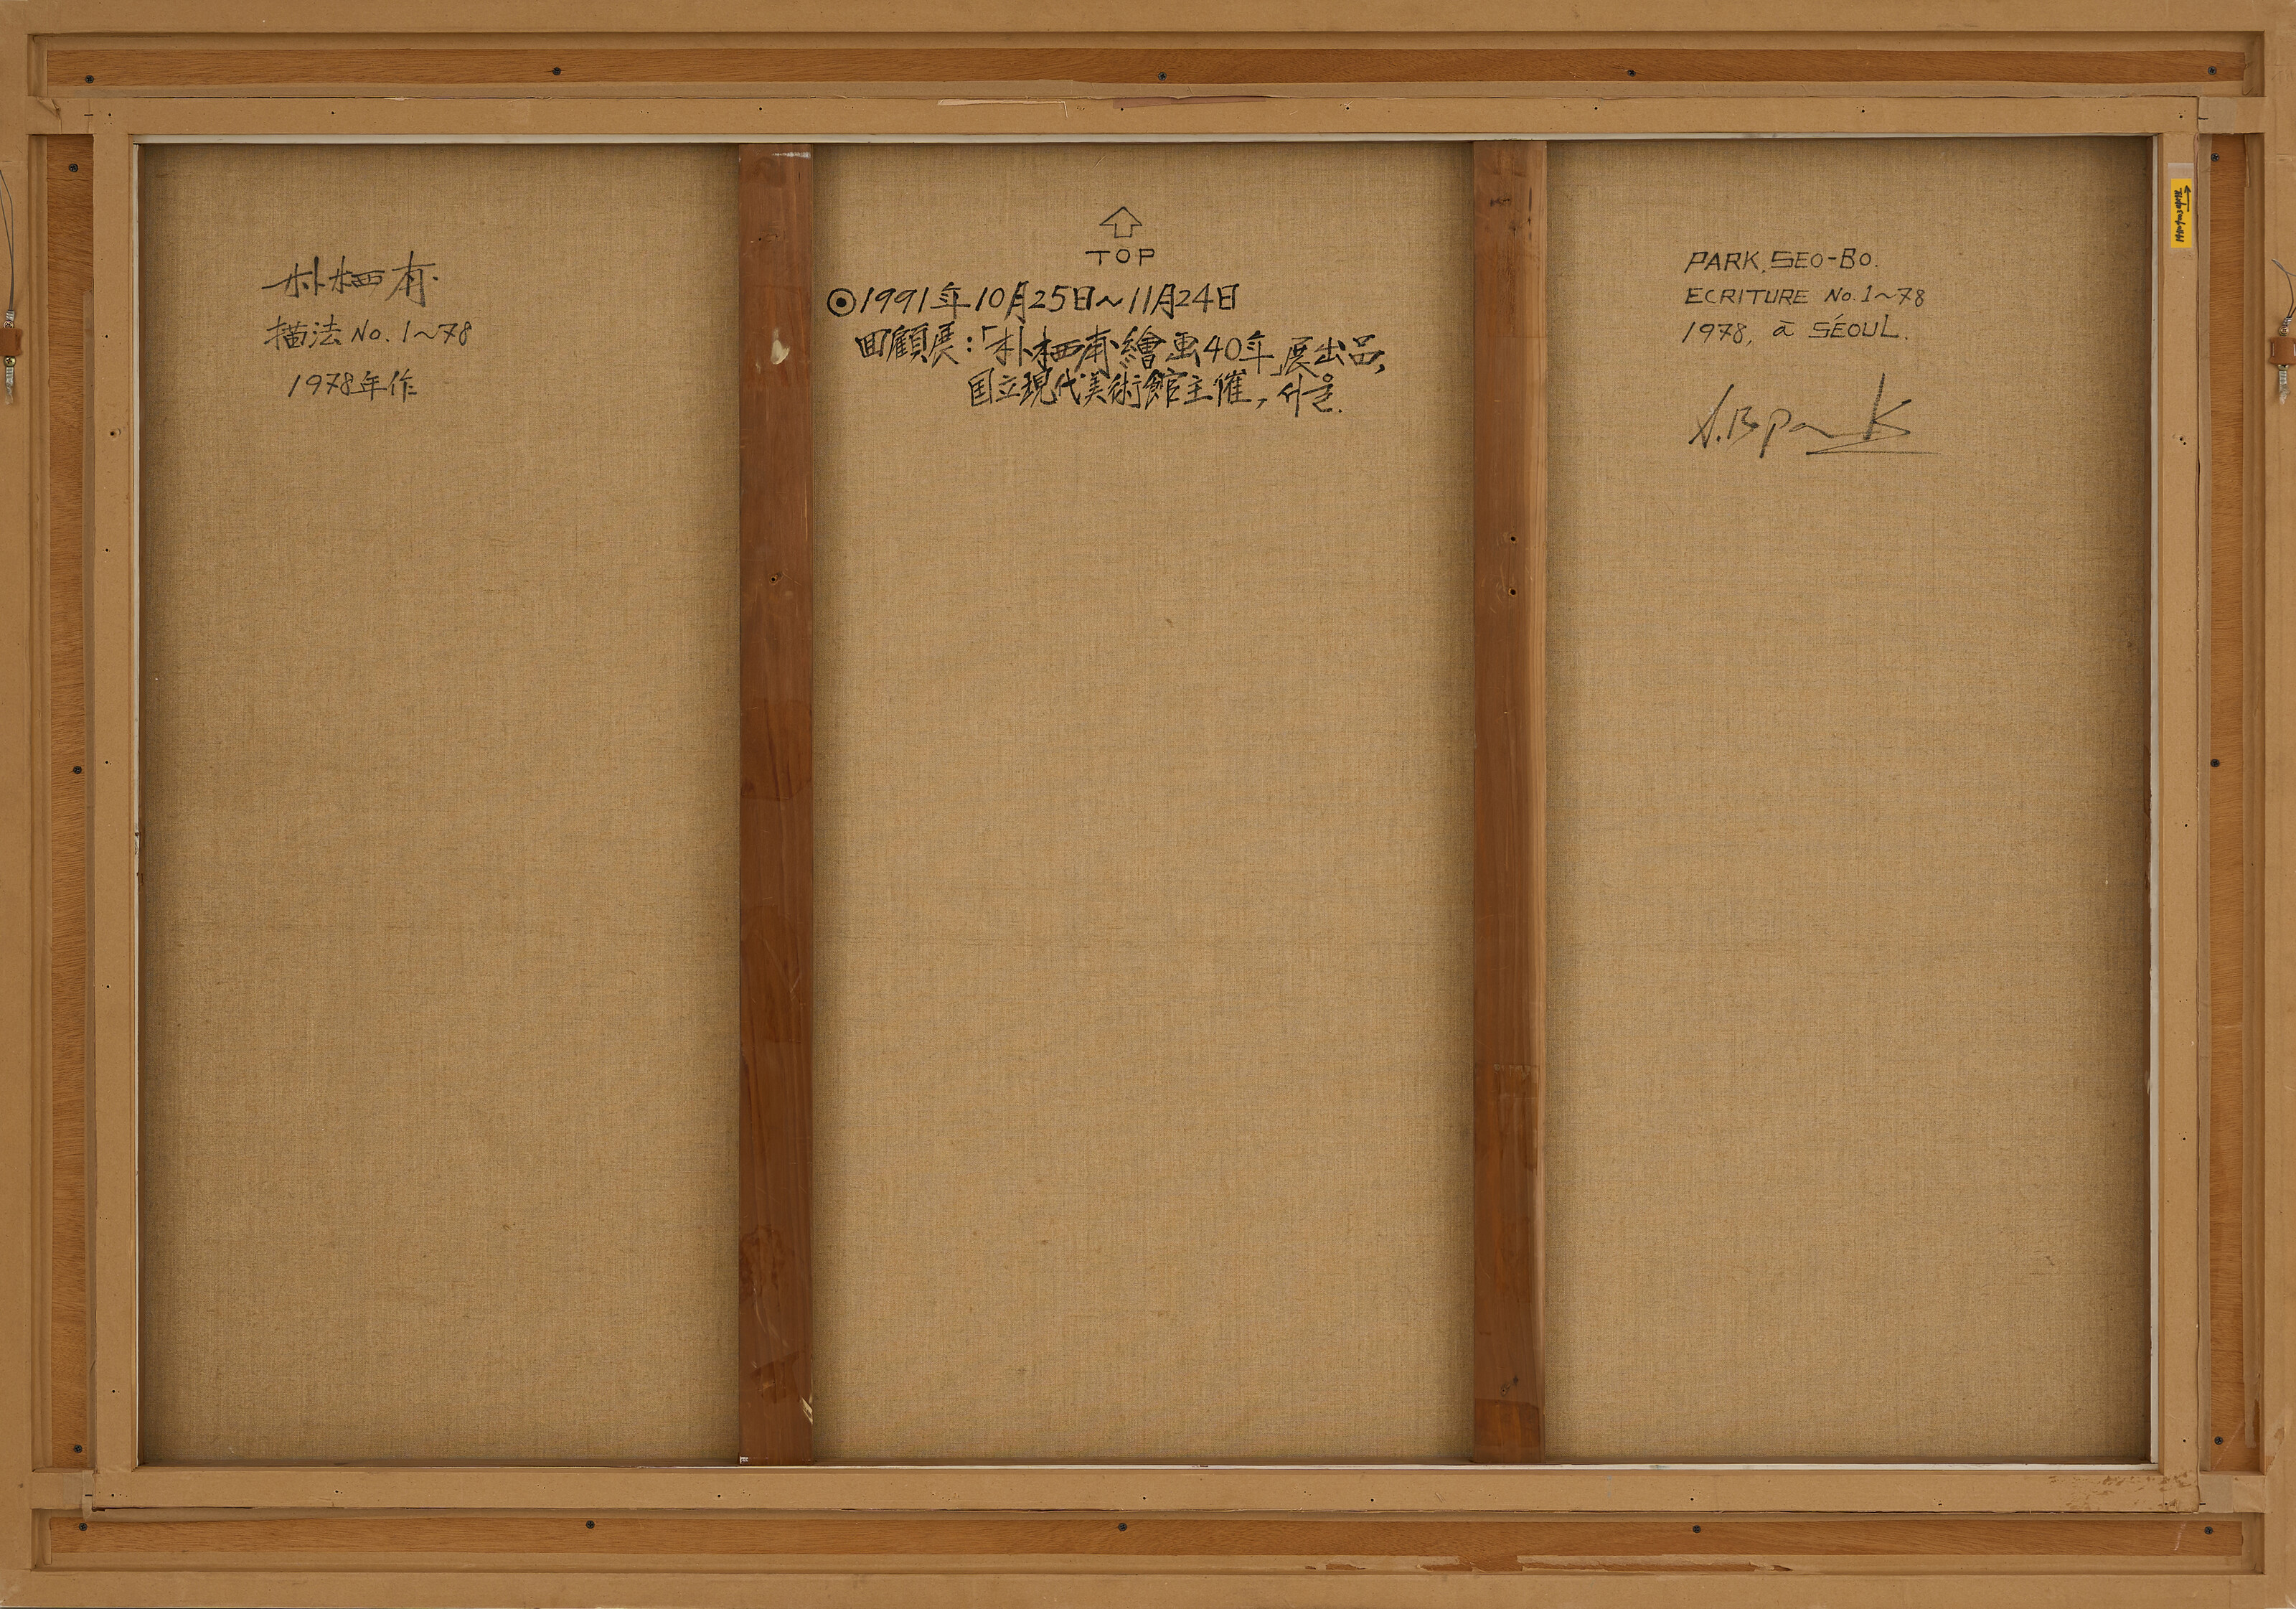 朴栖甫.
描法 No. 1~78
1978年作
⇧
TOP
⊙1991年10月25日~11月24日
回顧展:「朴栖甫繪画40年」展出品,
国立現代美術館主催, 서울.
PARK, SEO-BO.
ECRITURE No. 1~78
1978, à SÉOUL.
S.B Park